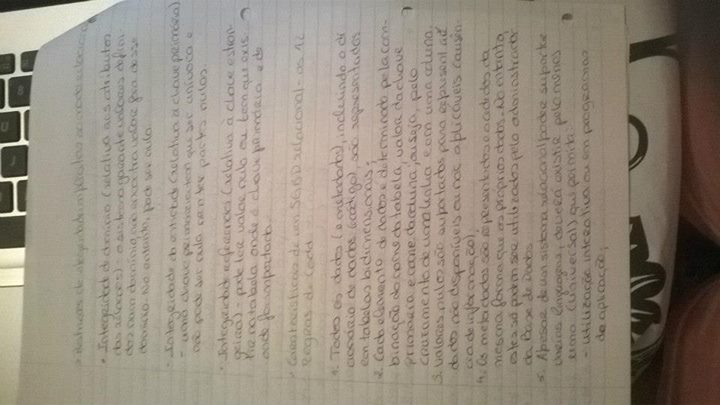 > Restrições de integridade
• Integridade de domínio (relativa aos atributos
das relações) o sistema garante valores defini-
dos num domínio, não
domínio. No entanto, pode ser nula.
• Integridade de entidade (relativa à chave primária)
- uma chave primária tem que ser unívoca e
não pode ser nula nem ter partes nulas.
• Integridade referencial (relativa à chave estran-
geira) - pode ter valor nulo ou tem que exis-
tir na tabela onde é chave primária e de
onde foi importada.
> Características de um SGBD relacional: as 12
Regras de Codd
1. Todos os dados (e metadados), incluindo o di
cionário de dados (catálogo) são representados
em tabelas bidimensionais;
2. Cada elemento de dados é determinado pela com-
binação do nome da tabela, valor da chave
primária e nome da coluna, ou seja, pelo
cruzamento de uma linha e com uma coluna.
3. Valores nulos são suportados para representar
dados não disponíveis ou não aplicáveis (ausên-
cia de informação);
4. Os metadados são representados e acedidos da
mesma forma que os próprios dados. No entanto,
estes só podem ser utilizados pelo administrador
da Base de Dados.
5. Apesar de um sistema relacional poder suportar
várias linguagens, deverá existir pelo menos
uma (universal) que permita:
- utilização interativa ou em programas
de aplicação;